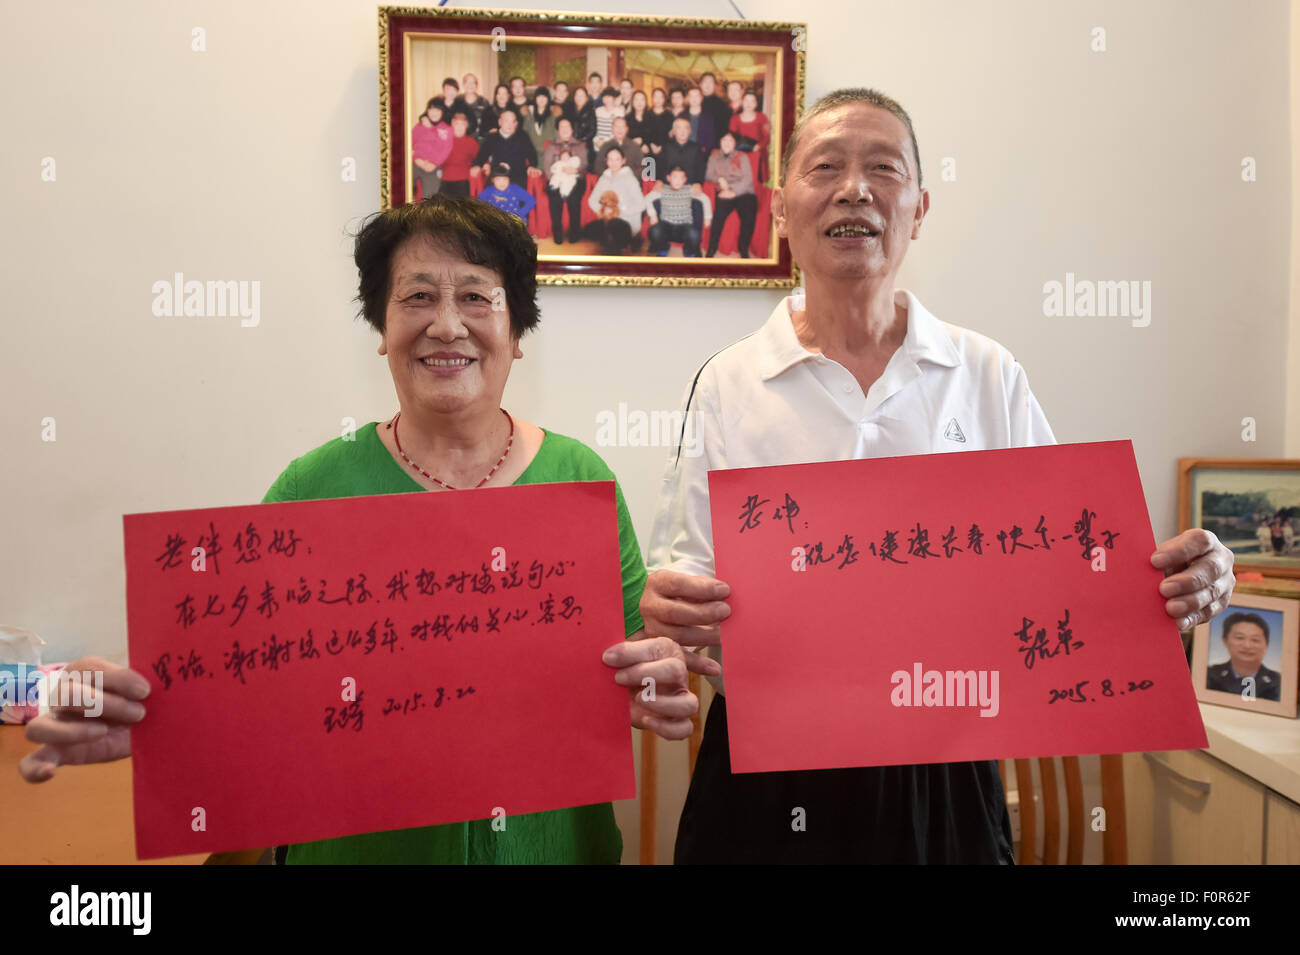 老伴您好：
在七夕来临之际，我想对您说句心
里话，谢谢您这么多年，对我的关心、容忍。
2015.8.20
老伴：
祝您健康长寿快乐一辈子
2015.8.20
alamy
alamy stock photo
F0R62F
www.alamy.com